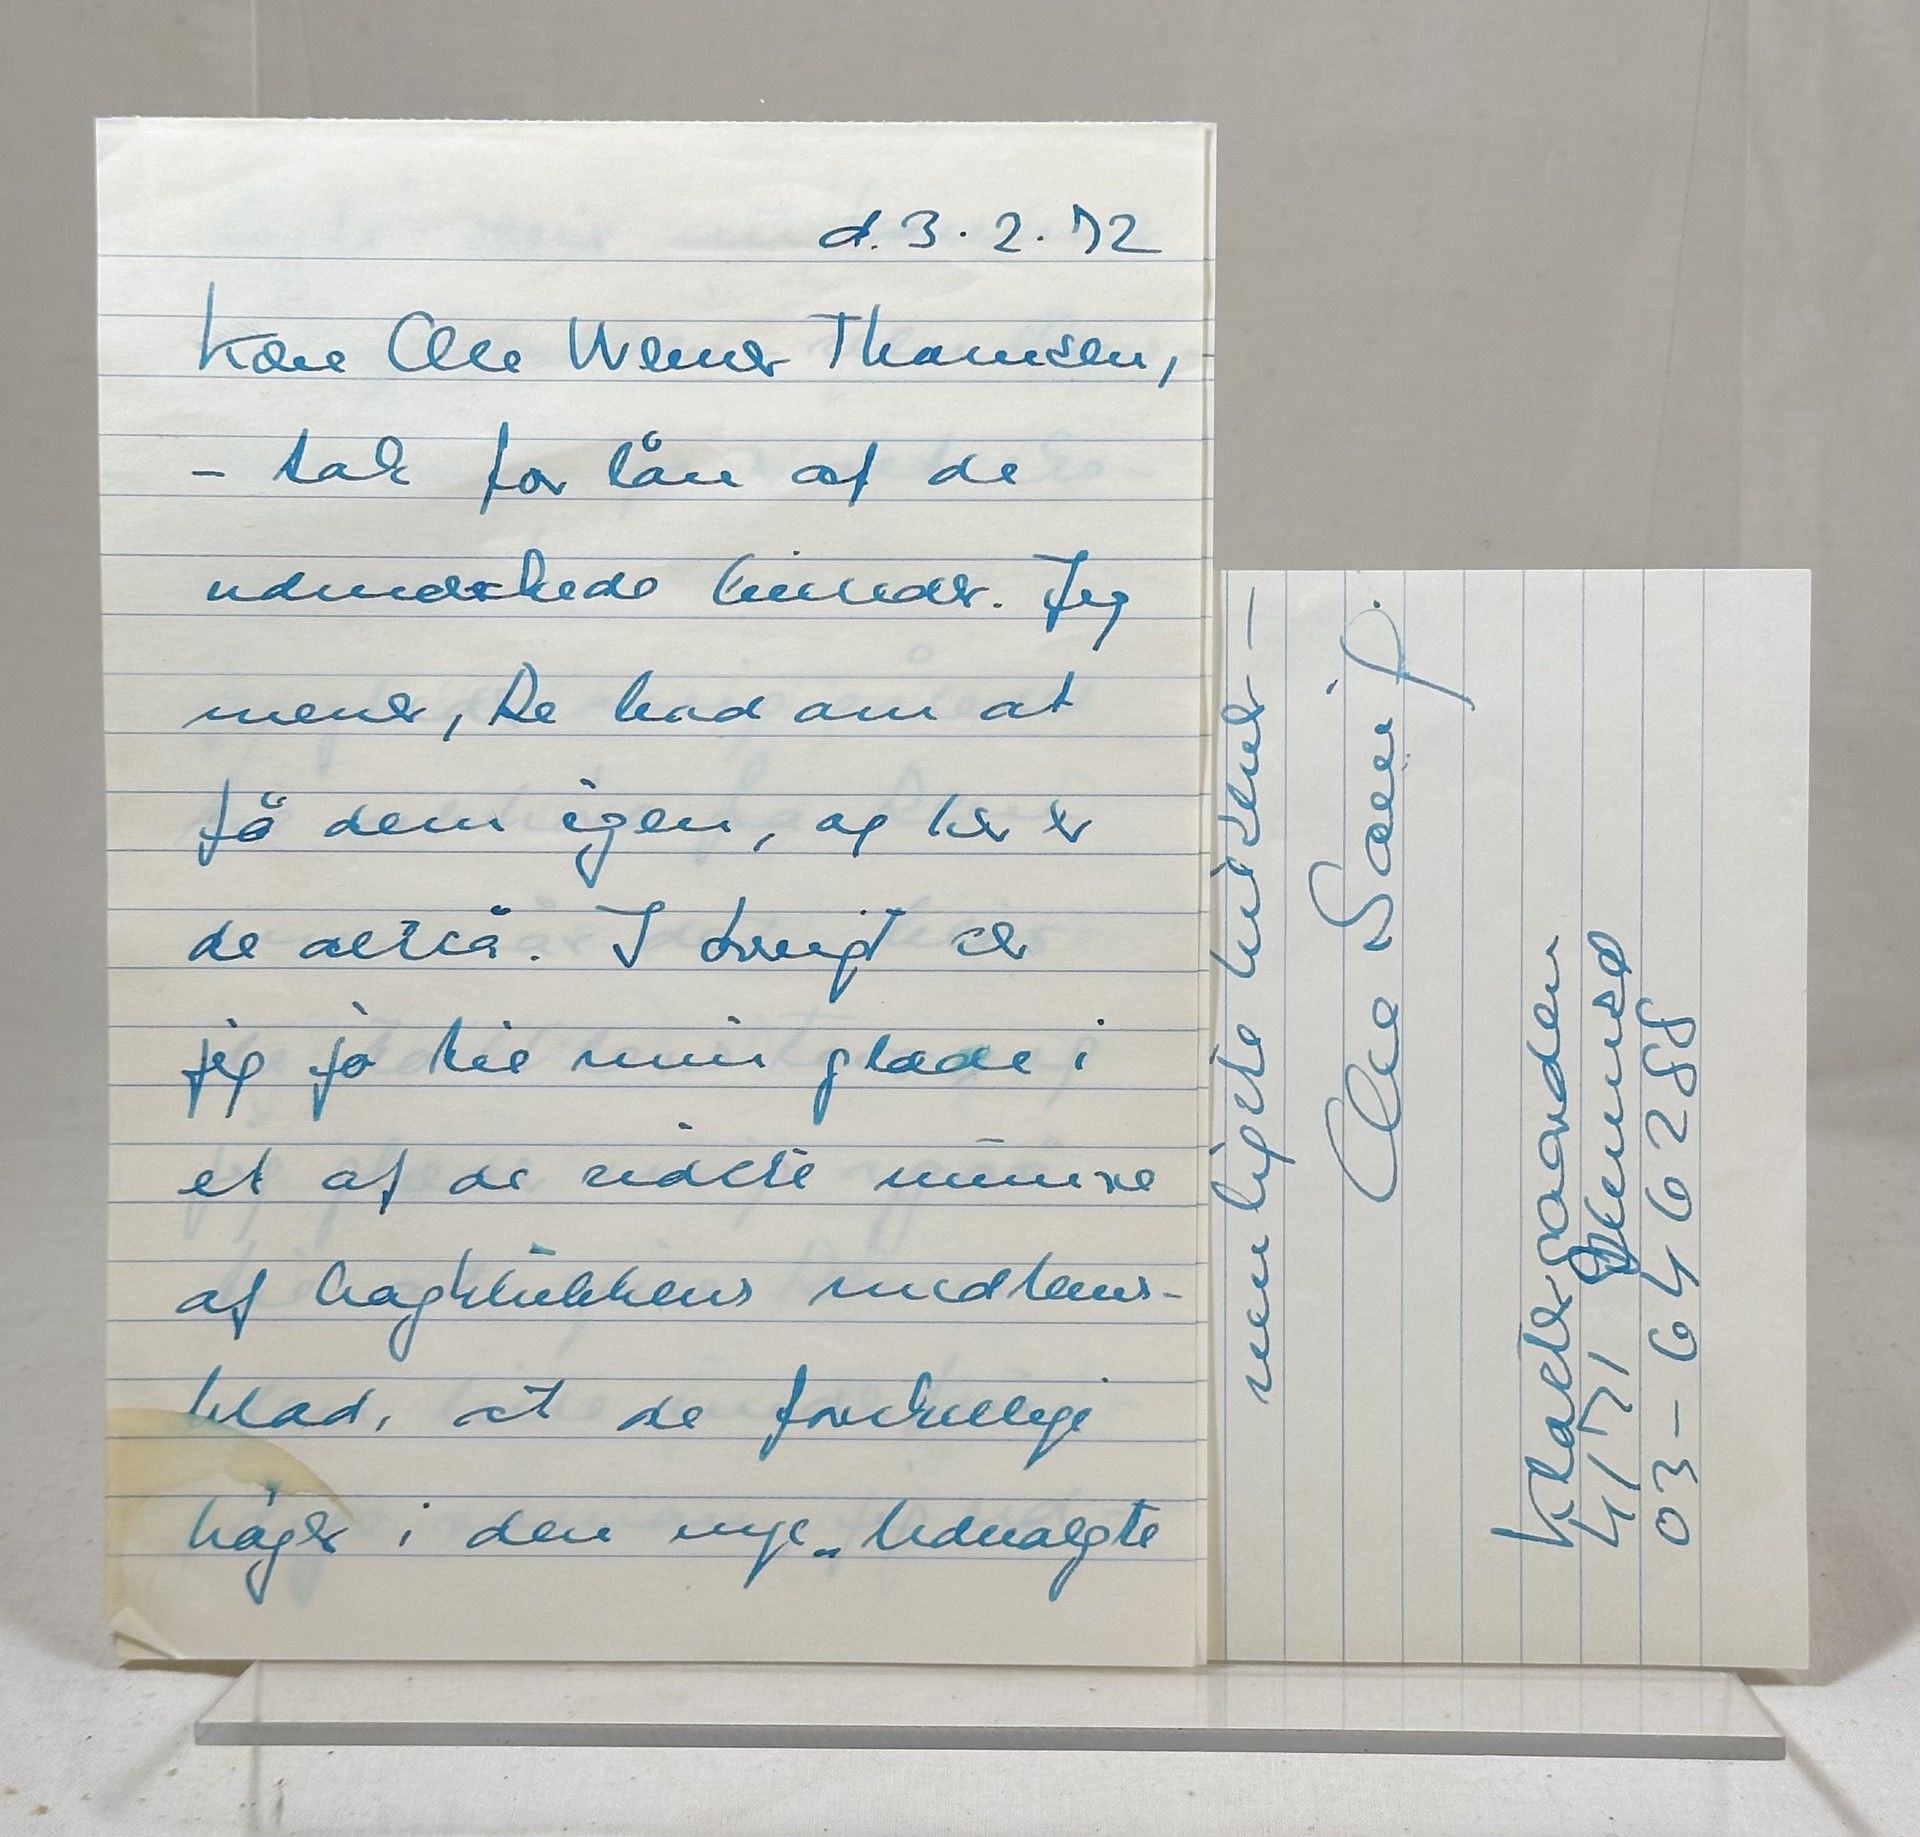 d. 3. 2. 72
Kære Ole Werner Thomsen,
- tak for lån af de
udmærkede bind. Jeg
mener, De bad om at
få dem igen, og her er
de altså. I øvrigt ser
jeg jo til min glæde i
et af de sidste numre
af bogklubbens medlems-
blad, at de forskellige
bøger i den nye "Udvalgte
venligste hilsner -
Ole Sarvig.
Klostergaarden
4171 Glumsø
03-646288